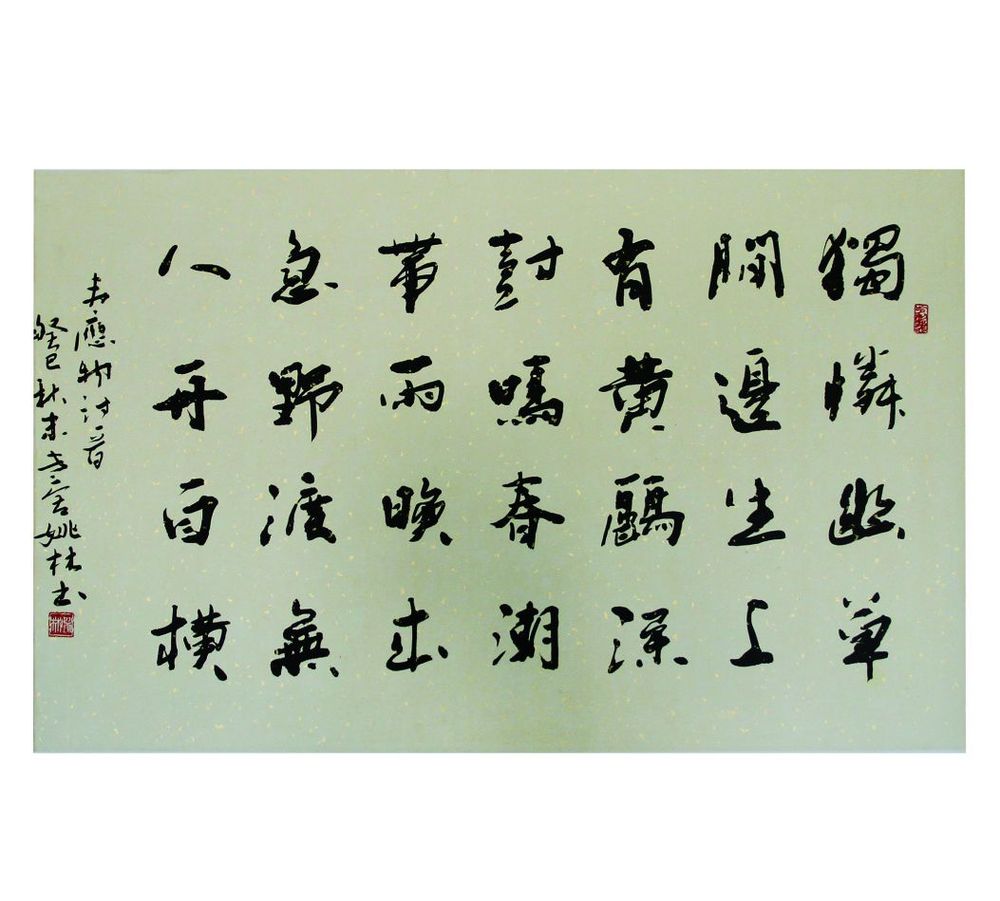 獨憐幽草
澗邊生上
有黃鸝深
樹鳴春潮
帶雨晚來
急野渡無
人舟自橫
韋應物詩一首
癸巳秋末姚林書